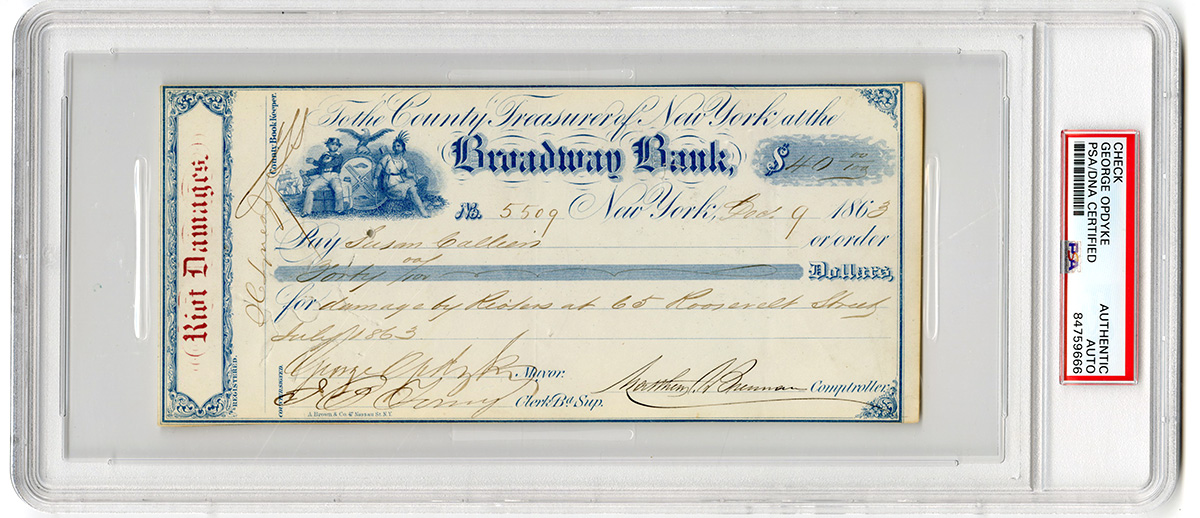 Riot Damages.
REGISTERED.
County Book Keeper.
COUNTERSIGNED
To the County Treasurer of New York at the
Broadway Bank,
$ 40 00/100
No. 5509 New York, Dec. 9 1863
Pay Susan Callien or order
Forty 00/100 Dollars,
for damage by Rioters at 65 Roosevelt Street
July 1863
George Opdyke Mayor.
Matthew T. Brennan Comptroller
Clerk Bd Sup.
A. Brown & Co. 47 Nassau St. N.Y.
CHECK
GEORGE OPDYKE
PSA/DNA CERTIFIED
PSA
AUTHENTIC
AUTO
84759666